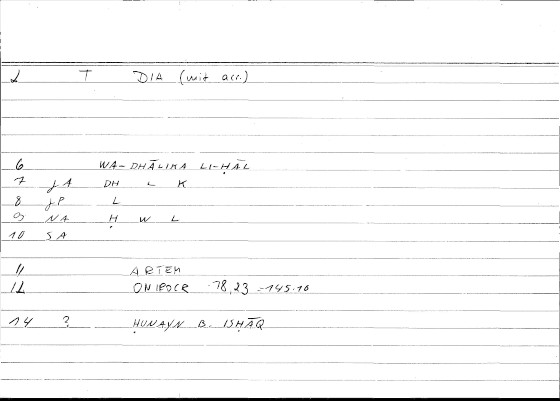 1 T DIA (wit acc.)
6 WA-DHĀLIKA LI-ḤĀL
7 JA DH L K
8 JP L
9 NA Ḥ W L
10 SA
11 ARTEM
12 ONIROCR 78,23 = 145.10
14 ? ḤUNAYN B. ISḤĀQ